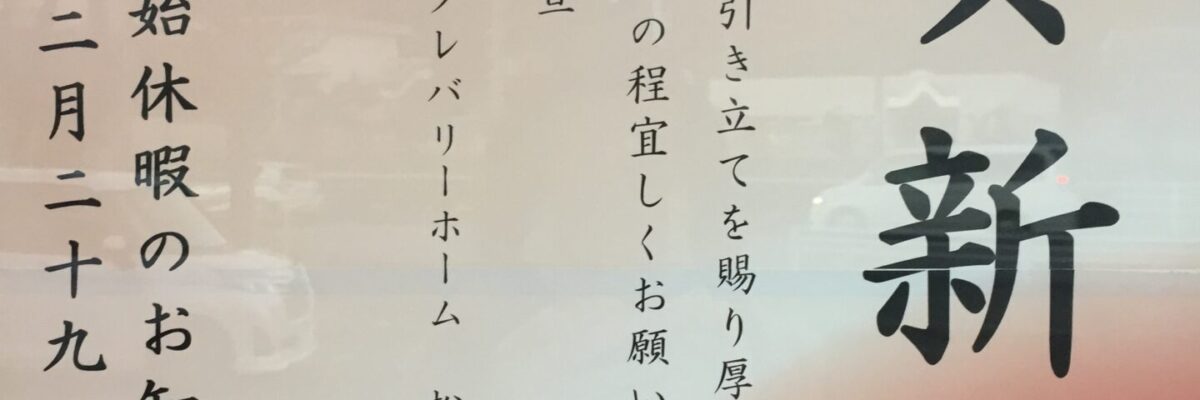 新
引き立てを賜り厚
の程宜しくお願い
レバリーホーム
始休暇のお知
二月二十九